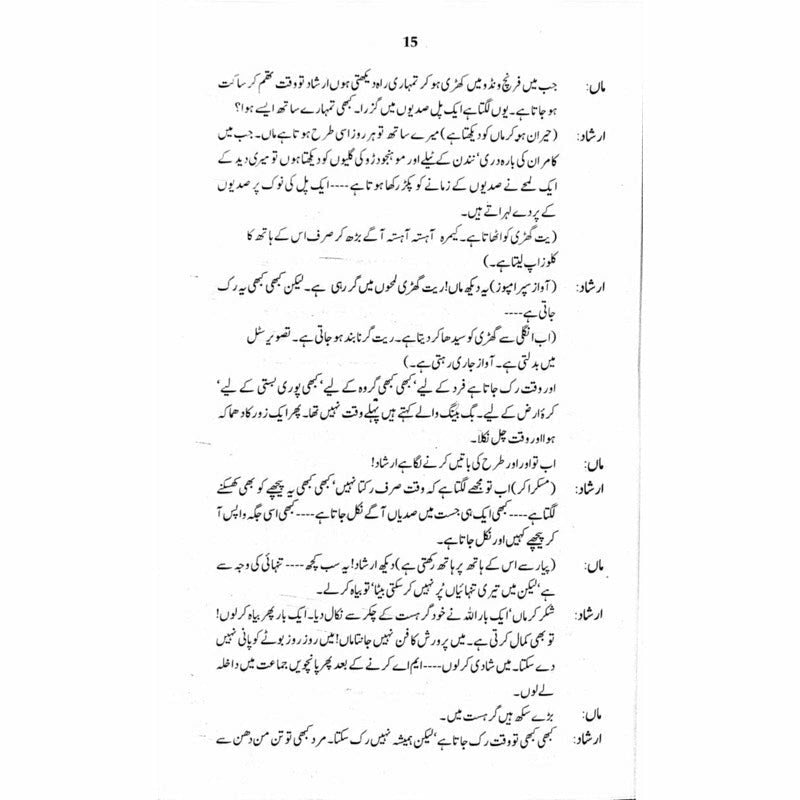 15
ماں: جب میں فرنچ ونڈو میں کھڑی ہو کر تمہاری راہ دیکھتی ہوں ارشاد تو وقت تھم کر ساکت
ہو جاتا ہے۔ یوں لگتا ہے ایک پل صدیوں میں گزرا۔ کبھی تمہارے ساتھ ایسے ہوا؟
ارشاد: (حیران ہو کر ماں کو دیکھتا ہے) میرے ساتھ تو ہر روز اسی طرح ہوتا ہے ماں۔ جب میں
کامران کی بارہ دری‘ نندن کے ٹیلے اور موہنجودڑو کی گلیوں کو دیکھتا ہوں تو میری دید کے
ایک لمحے نے صدیوں کے زمانے کو پکڑ رکھا ہوتا ہے----ایک پل کی نوک پر صدیوں
کے پردے لہراتے ہیں۔
(ریت گھڑی کو اٹھاتا ہے۔ کیمرہ آہستہ آہستہ آگے بڑھ کر صرف اس کے ہاتھ کا
کلوز اپ لیتا ہے۔)
ارشاد: (آواز سپر امپوز) یہ دیکھ ماں! ریت گھڑی لمحوں میں گر رہی ہے۔ لیکن کبھی کبھی یہ رک
جاتی ہے----
(اب انگلی سے گھڑی کو سیدھا کر دیتا ہے۔ ریت گرنا بند ہو جاتی ہے۔ تصویر سٹل
میں بدلتی ہے۔ آواز جاری رہتی ہے۔)
اور وقت رک جاتا ہے فرد کے لیے‘ کبھی کبھی گروہ کے لیے‘ کبھی پوری بستی کے لیے‘
کرۂ ارض کے لیے۔ بگ بینگ والے کہتے ہیں پہلے وقت نہیں تھا۔ پھر ایک زور کا دھماکہ
ہوا اور وقت چل نکلا۔
ماں: اب تو اور اور طرح کی باتیں کرنے لگا ہے ارشاد!
ارشاد: (مسکرا کر) اب تو مجھے لگتا ہے کہ وقت صرف رکتا نہیں‘ کبھی کبھی یہ پیچھے کو بھی کھسکنے
لگتا ہے----کبھی ایک ہی جست میں صدیاں آگے نکل جاتا ہے----کبھی اسی جگہ واپس آ
کر پیچھے کہیں اور نکل جاتا ہے۔
ماں: (پیار سے اس کے ہاتھ پر ہاتھ رکھتی ہے) دیکھ ارشاد! یہ سب کچھ---- تنہائی کی وجہ سے
ہے‘ لیکن میں تیری تنہائیاں پُر نہیں کر سکتی بیٹا‘ تو بیاہ کر لے۔
ارشاد: شکر کر ماں‘ ایک بار اللہ نے خود گرہست کے چکر سے نکال دیا۔ ایک بار پھر بیاہ کر لوں!
تو بھی کمال کرتی ہے۔ میں پرورش کا فن نہیں جانتا ماں! میں روز روز بوٹے کو پانی نہیں
دے سکتا۔ میں شادی کر لوں----ایم اے کرنے کے بعد پھر پانچویں جماعت میں داخلہ
لے لوں۔
ماں: بڑے سکھ ہیں گرہست میں۔
ارشاد: کبھی کبھی تو وقت رک جاتا ہے‘ لیکن ہمیشہ نہیں رک سکتا۔ مرد کبھی تو تن من دھن سے